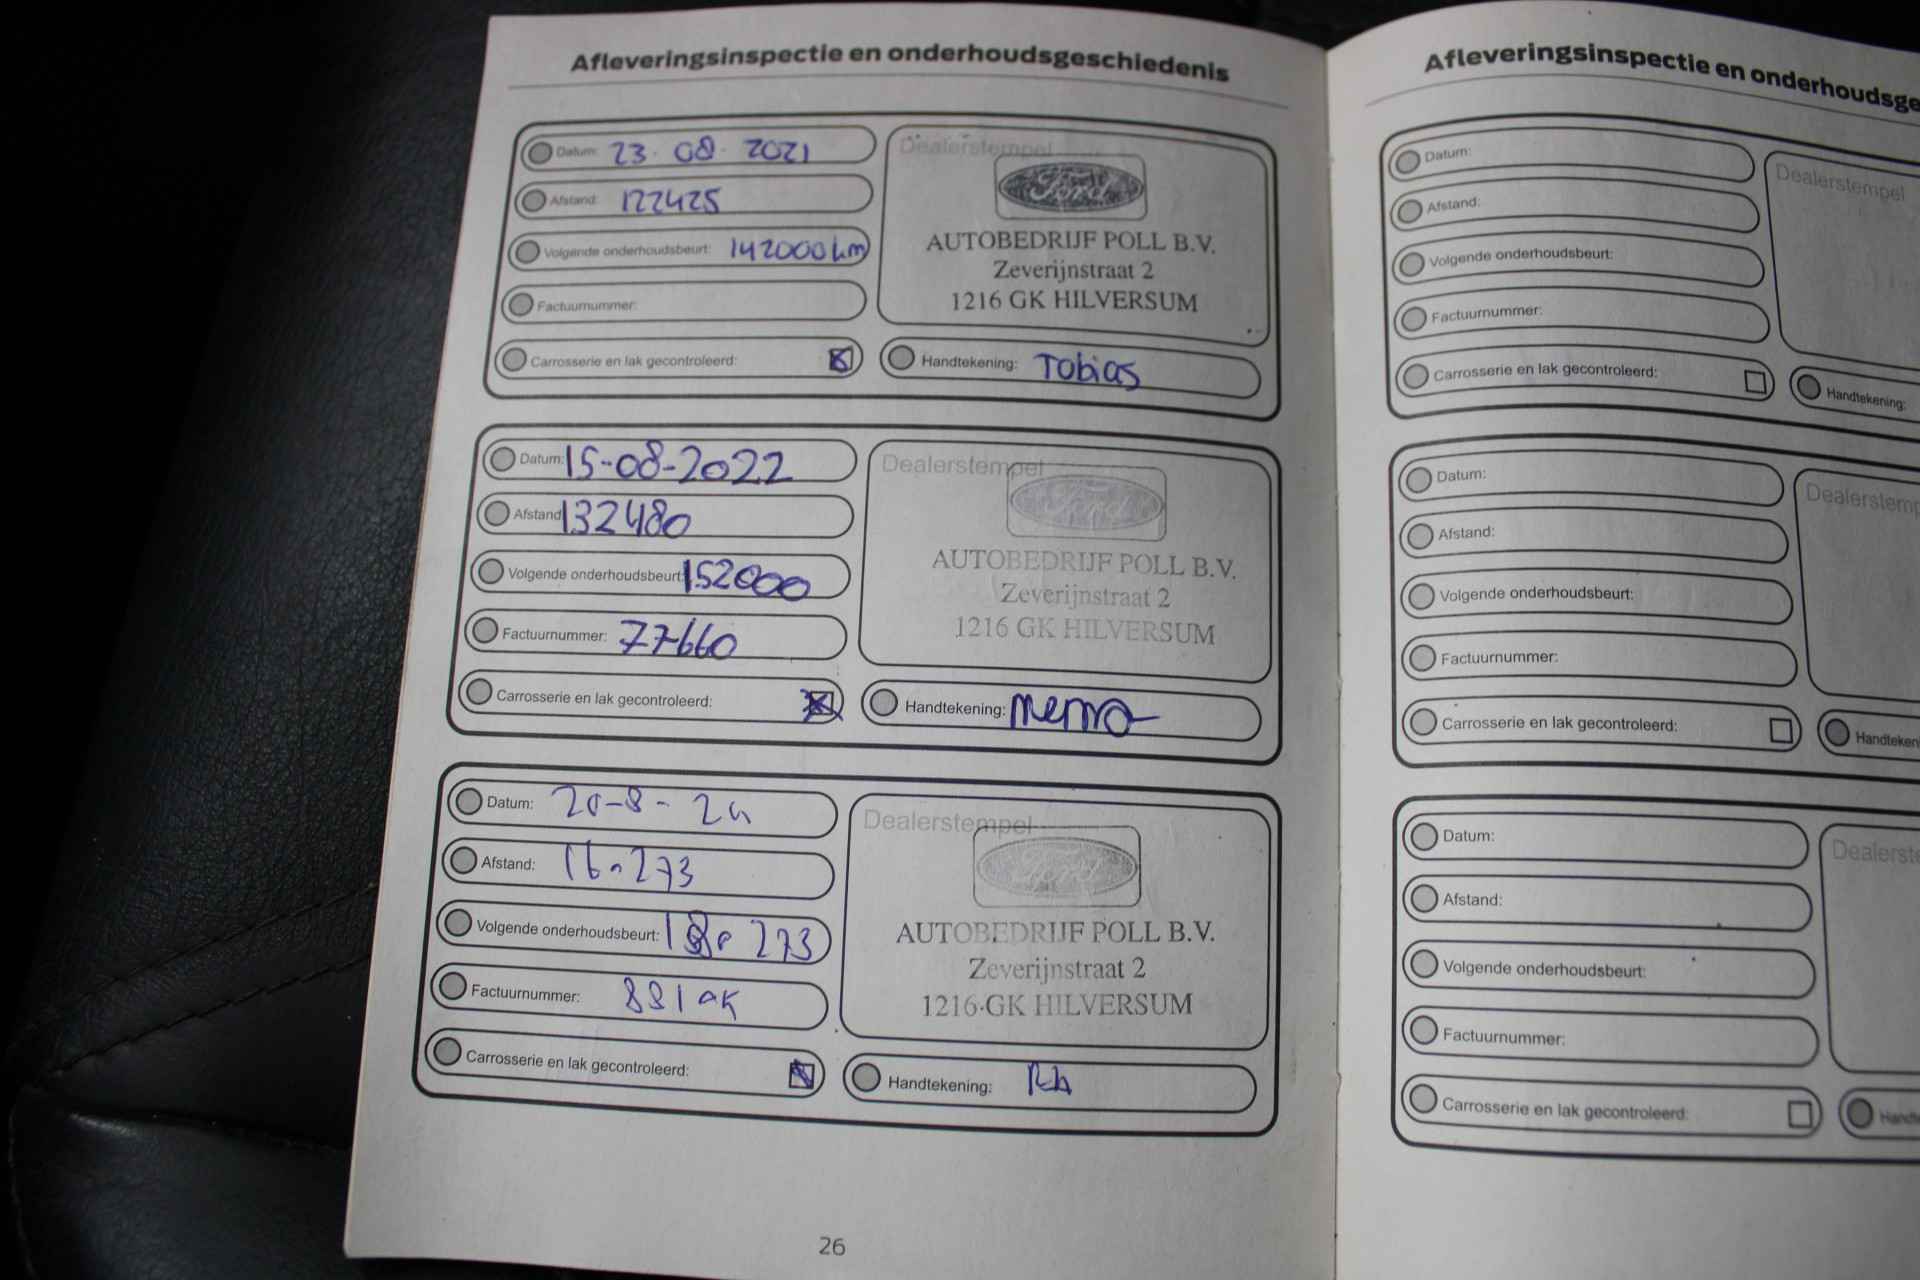 Afleveringsinspectie en onderhoudsgeschiedenis
Datum: 23-08-2021
Afstand: 122425
Volgende onderhoudsbeurt: 142000 km
Factuurnummer:
Carrosserie en lak gecontroleerd:
Dealerstempel
Ford
AUTOBEDRIJF POLL B.V.
Zeverijnstraat 2
1216 GK HILVERSUM
Handtekening: Tobias
Datum: 15-08-2022
Afstand 132480
Volgende onderhoudsbeurt: 152000
Factuurnummer: 77660
Carrosserie en lak gecontroleerd:
Dealerstempel
Ford
AUTOBEDRIJF POLL B.V.
Zeverijnstraat 2
1216 GK HILVERSUM
Handtekening:
Datum:
Afstand:
Volgende onderhoudsbeurt:
Factuurnummer:
Carrosserie en lak gecontroleerd:
Dealerstempel
Ford
AUTOBEDRIJF POLL B.V.
Zeverijnstraat 2
1216 GK HILVERSUM
Handtekening:
26
Afleveringsinspectie en onderhoudsge
Datum:
Afstand:
Volgende onderhoudsbeurt:
Factuurnummer:
Carrosserie en lak gecontroleerd:
Dealerstempel
Handtekening:
Datum:
Afstand:
Volgende onderhoudsbeurt:
Factuurnummer:
Carrosserie en lak gecontroleerd:
Dealerstemp
Handteken
Datum:
Afstand:
Volgende onderhoudsbeurt:
Factuurnummer:
Carrosserie en lak gecontroleerd:
Dealerste
Handte